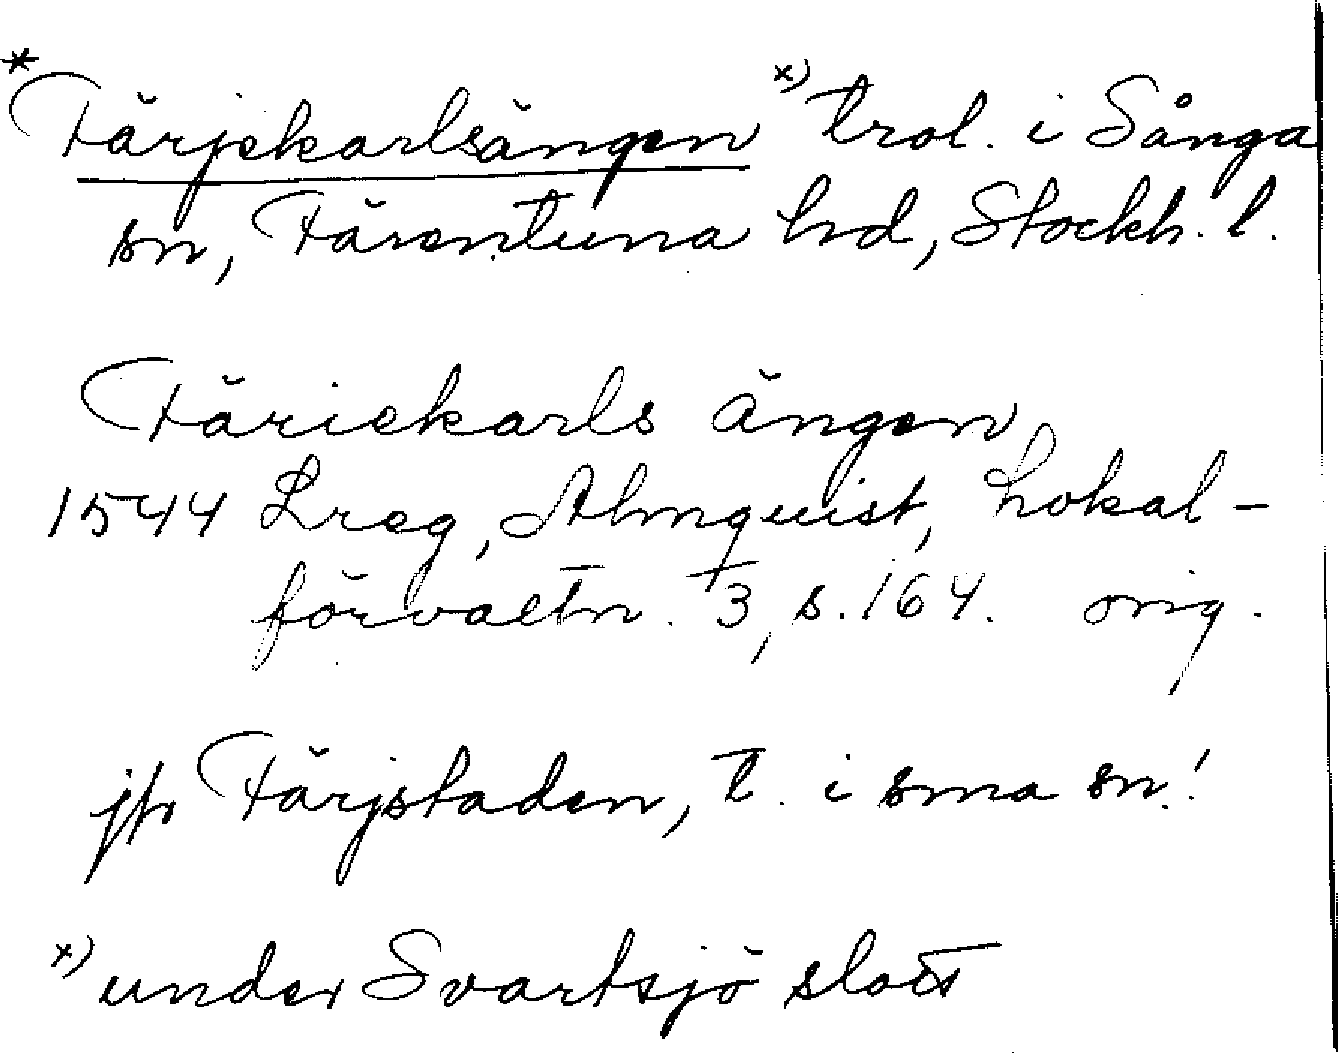 *Färjekarlsängen x) trol. i Sånga
sn, Färentuna hd, Stockh. l.
Färiekarls ängen
1544 Lreg, Almquist, Lokal-
förvaltn. 3, s. 164. orig.
jfr Färjstaden, t. i sma sn!
x) under Svartsjö slott